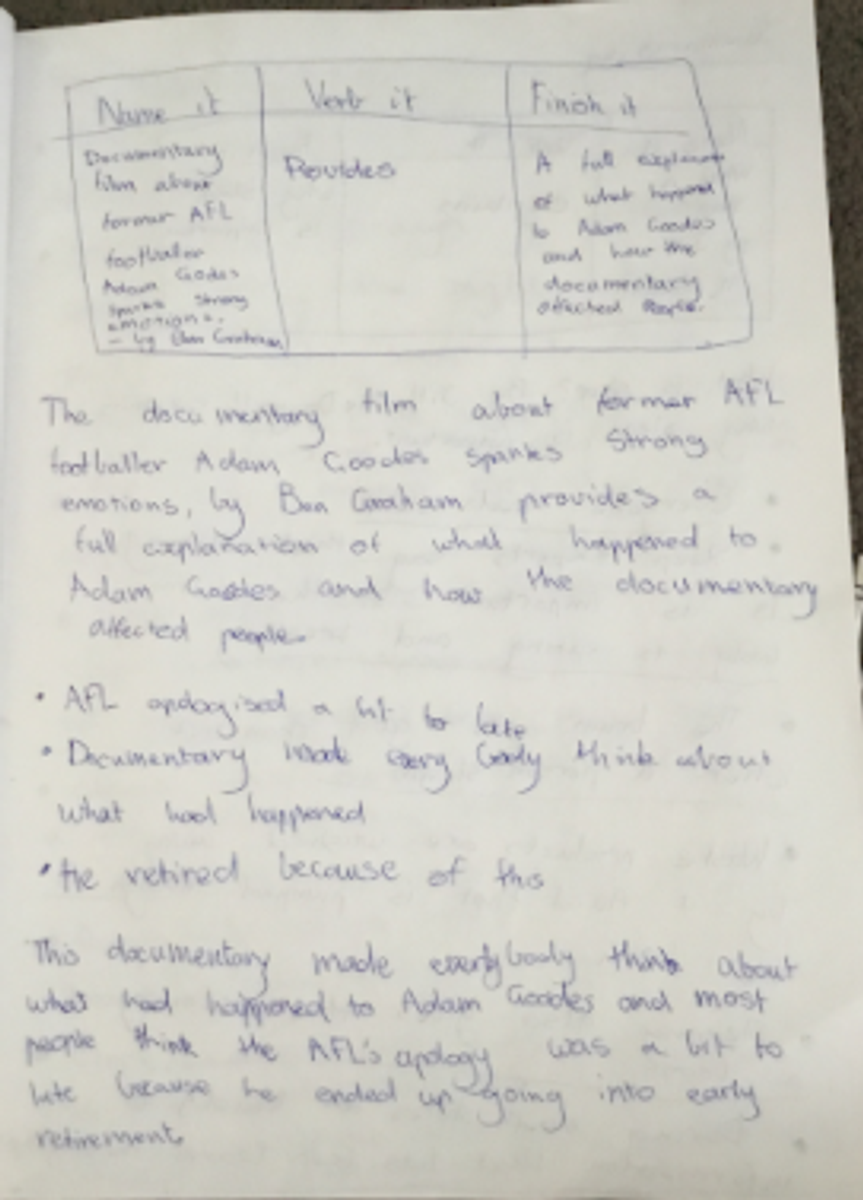 Name it
Documentary
film about
former AFL
footballer
Adam Godes
sparks strong
emotions.
- by Ben Graham
Verb it
Provides
Finish it
A full explanation
of what happened
to Adam Goodes
and how the
documentary
affected people.
The documentary film about former AFL
footballer Adam Goodes sparks Strong
emotions, by Ben Graham provides a
full explanation of what happened to
Adam Goodes and how the documentary
affected people.
• AFL apologised a bit to late
• Documentary made every body think about
what had happened
• He retired because of this
This documentary made everybody think about
what had happened to Adam Goodes and most
people think the AFL's apology was a bit to
late because he ended up going into early
retirement.